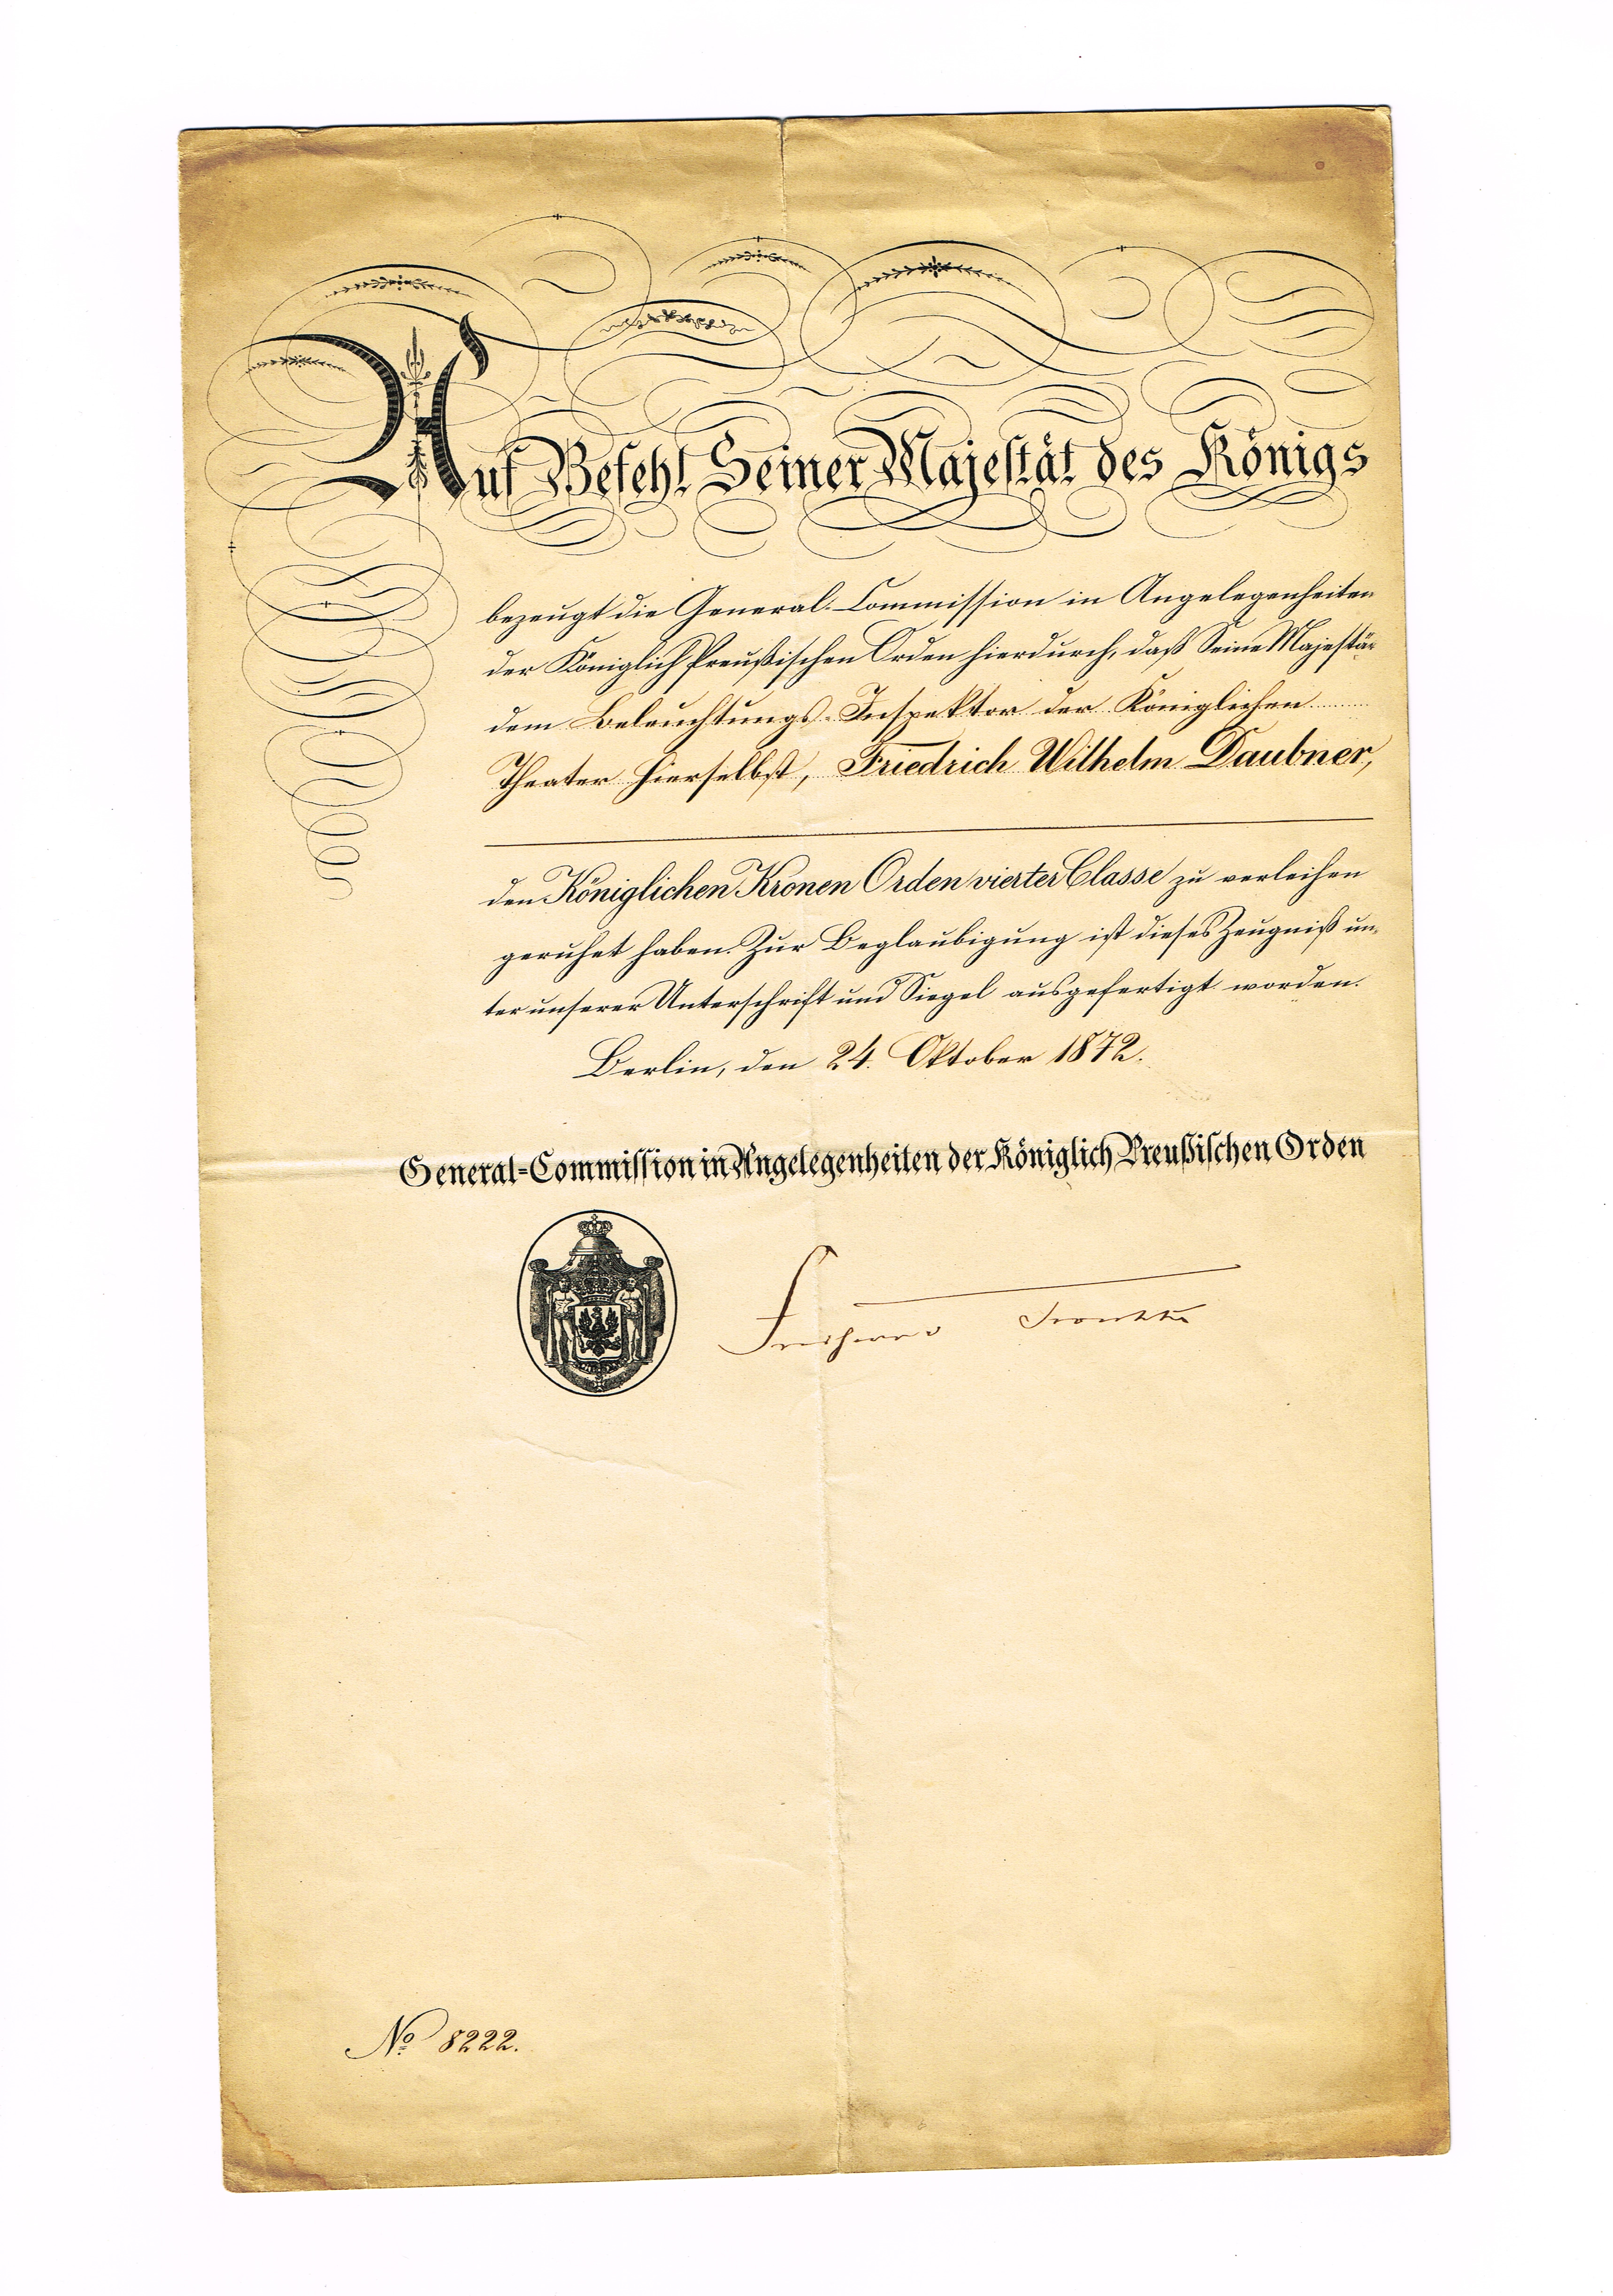 Auf Befehl Seiner Majestät des Königs
bezeugt die General-Commission in Angelegenheiten
der Königlich Preußischen Orden hierdurch, daß Seine Majestät
dem Beleuchtungs-Inspektor der Königlichen
Theater hierselbst, Friedrich Wilhelm Daubner,
den Königlichen Kronen Orden vierter Classe zu verleihen
geruhet haben. Zur Beglaubigung ist dieses Zeugniß un-
ter unserer Unterschrift und Siegel ausgefertigt worden.
Berlin, den 24. Oktober 1872.
General-Commission in Angelegenheiten der Königlich Preußischen Orden
No 8222.